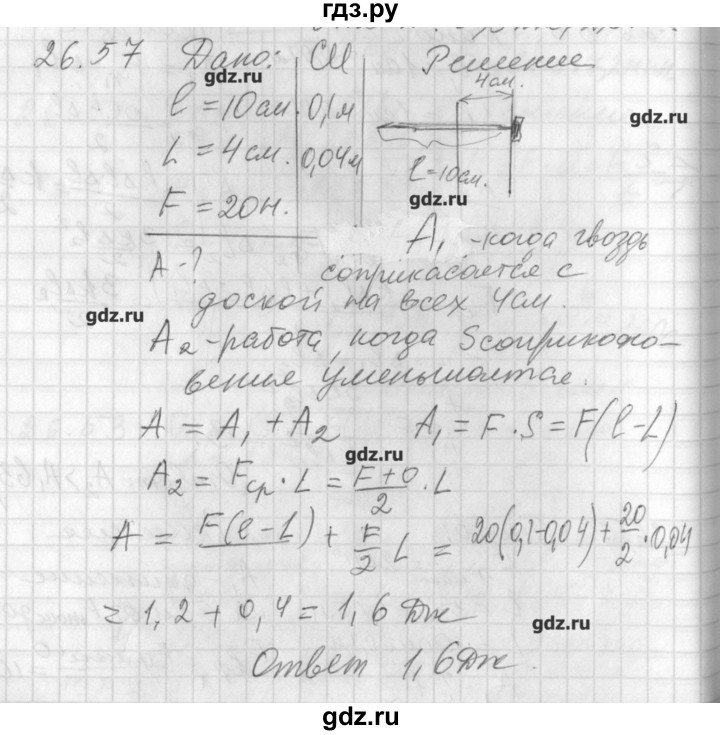 гдз.ру
26.57 Дано: СИ Решение
gdz.ru
4см.
l = 10см. 0,1м
gdz.ru
L = 4см. 0,04м
l = 10см.
gdz.ru
F = 20н.
A - ?
A₁ - когда гвоздь
соприкасается с
доской на всех 4см.
gdz.ru
A₂ - работа, когда S соприкосно-
вение уменьшается.
A = A₁ + A₂ A₁ = F · S = F(l - L)
gdz.ru
A₂ = Fср · L = (F + 0)/2 · L
A = F(l - L) + F/2 L = 20(0,1-0,04) + 20/2 · 0,04
= 1,2 + 0,4 = 1,6 Дж
gdz.ru
Ответ 1,6Дж.
gdz.ru